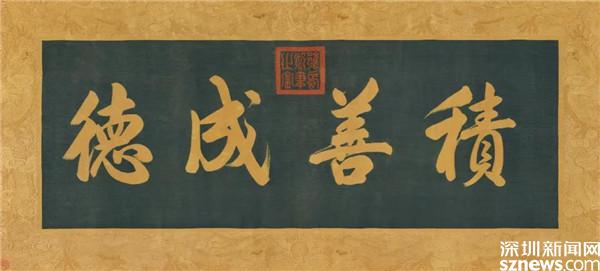 積善成德
深圳新闻网
sznews.com